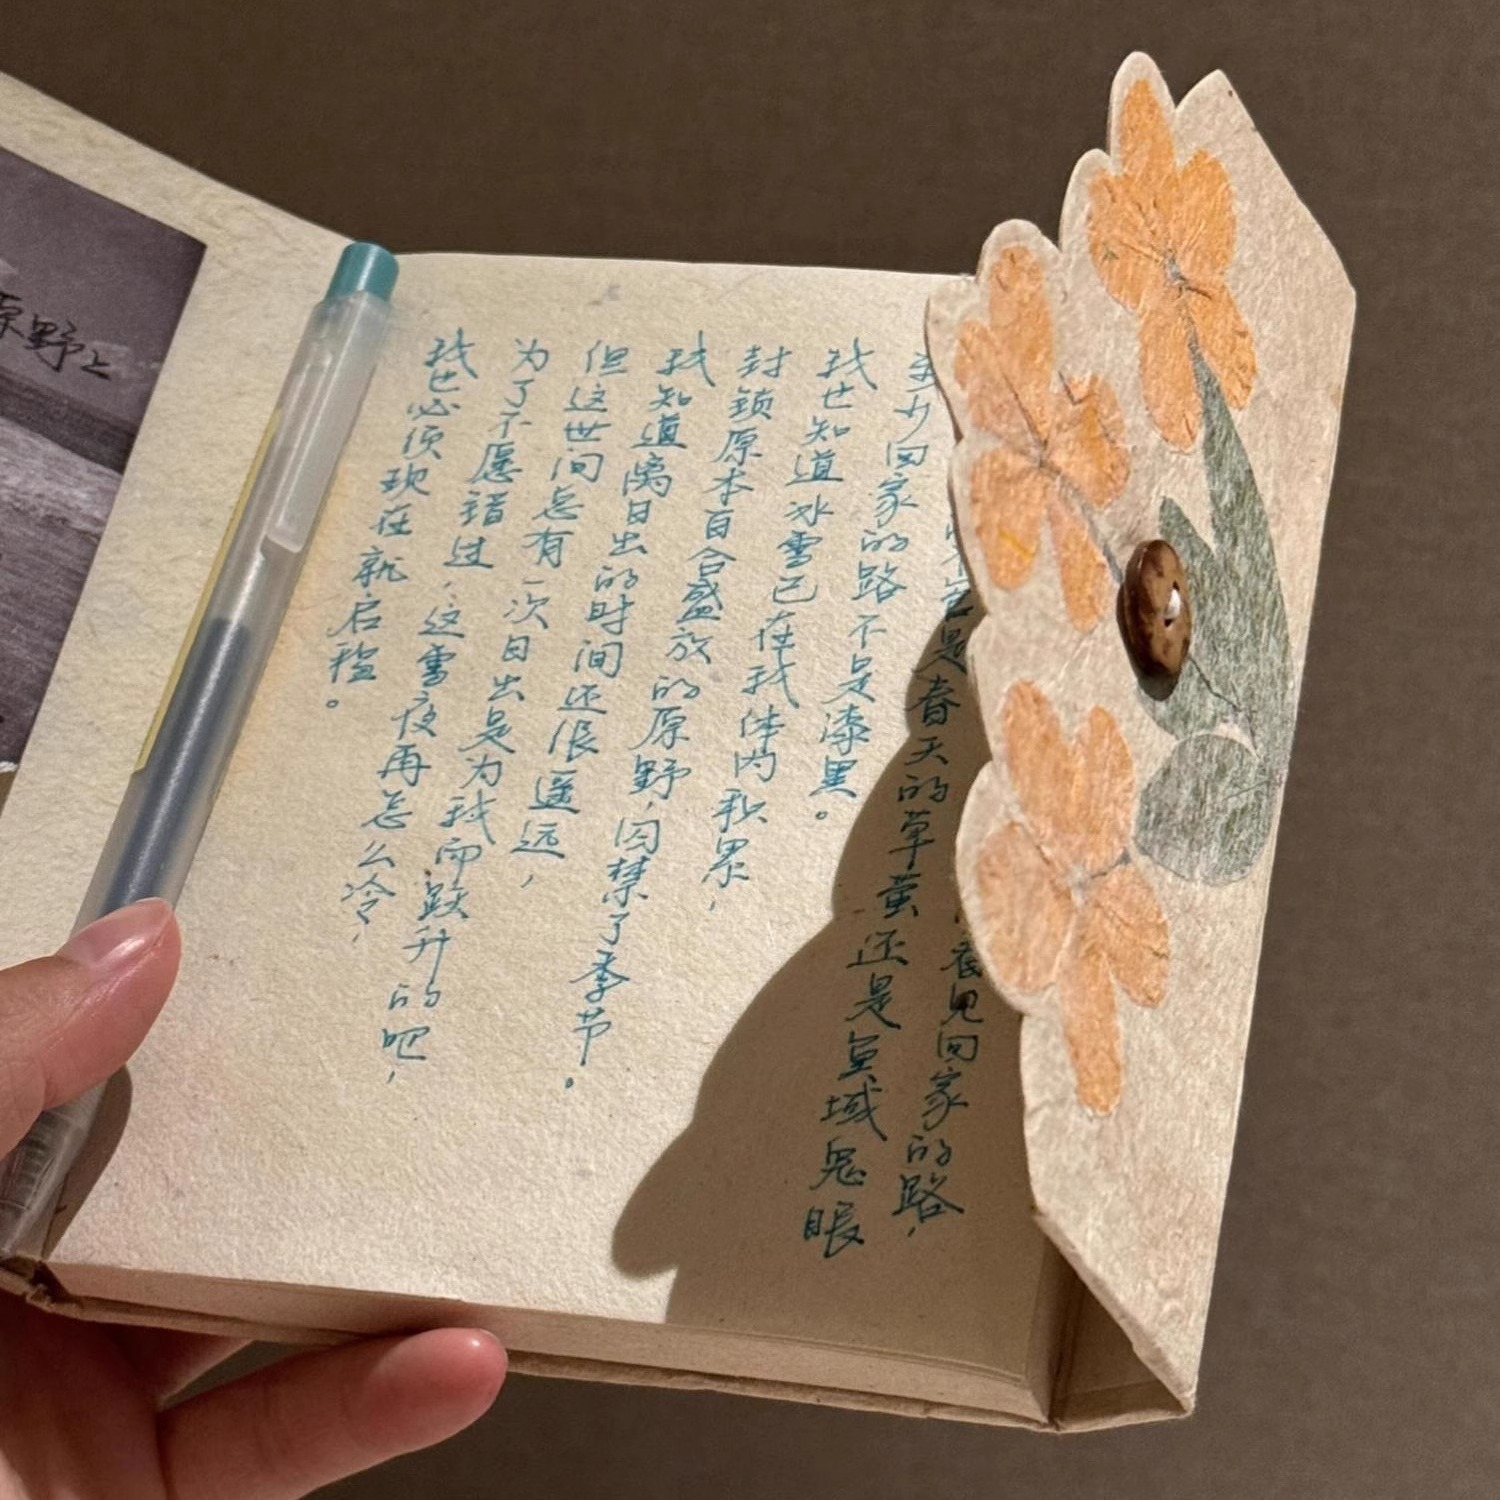 看见回家的路，
是春天的草萤还是域鬼眼
至少回家的路不是漆黑。
我也知道冰雪已在我体内积累，
封锁原本百合盛放的原野，囚禁了季节。
我知道离日出的时间还很遥远，
但这世间总有一次日出是为我而跃升的吧，
为了不愿错过，这雪夜再怎么冷，
我也必须现在就启程。
原野上